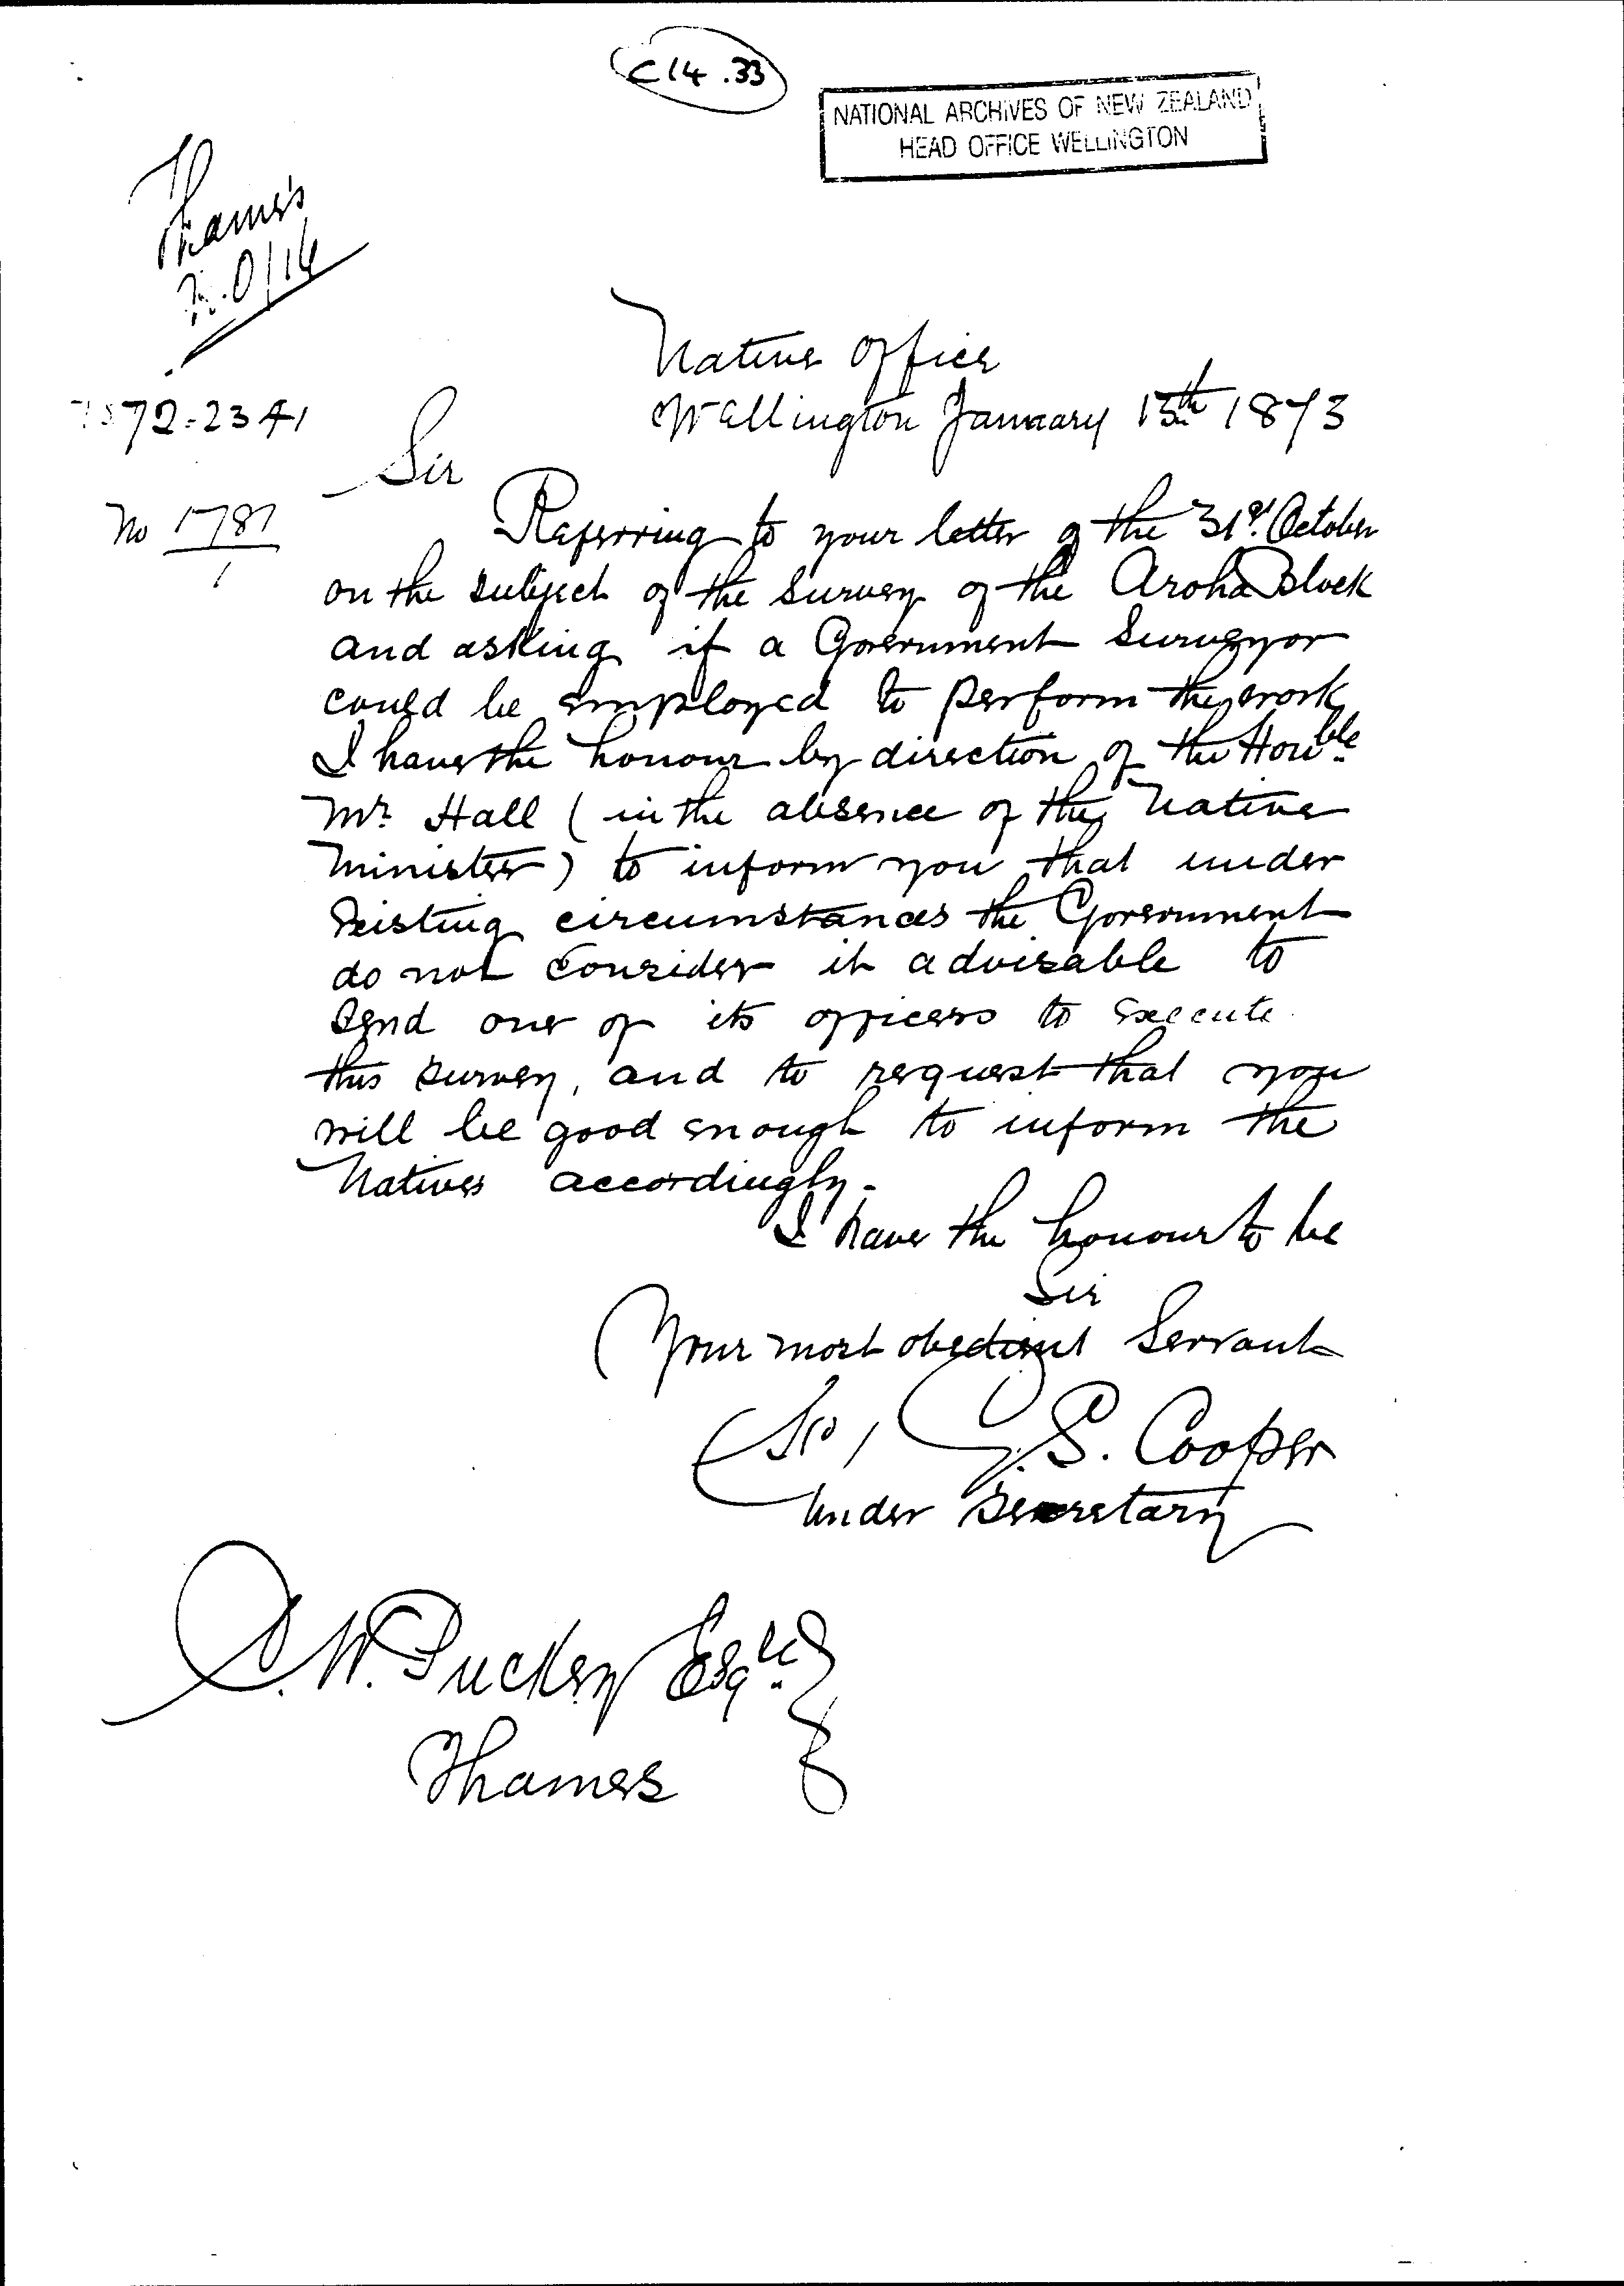 C14.33
NATIONAL ARCHIVES OF NEW ZEALAND
HEAD OFFICE WELLINGTON
Thames
Native Office
Wellington January 15th 1873
1872-2341
Sir
No 1781
1
Referring to your letter of the 31st October
on the subject of the survey of the Aroha Block
and asking if a Government Surveyor
could be employed to perform the work
I have the honour by direction of the Honble
Mr Hall (in the absence of the Native
Minister) to inform you that under
existing circumstances the Government
do not consider it advisable to
send one of its officers to execute
this survey, and to request that you
will be good enough to inform the
Natives accordingly.
I have the honour to be
Sir
Your most obedient Servant
G.S. Cooper
Under Secretary
E. W. Puckey Esqre
Thames